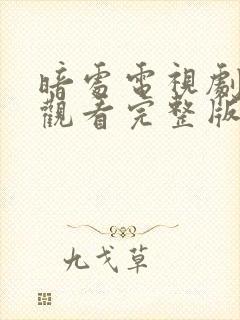 暗雷電視劇
觀看完整版
九戈草